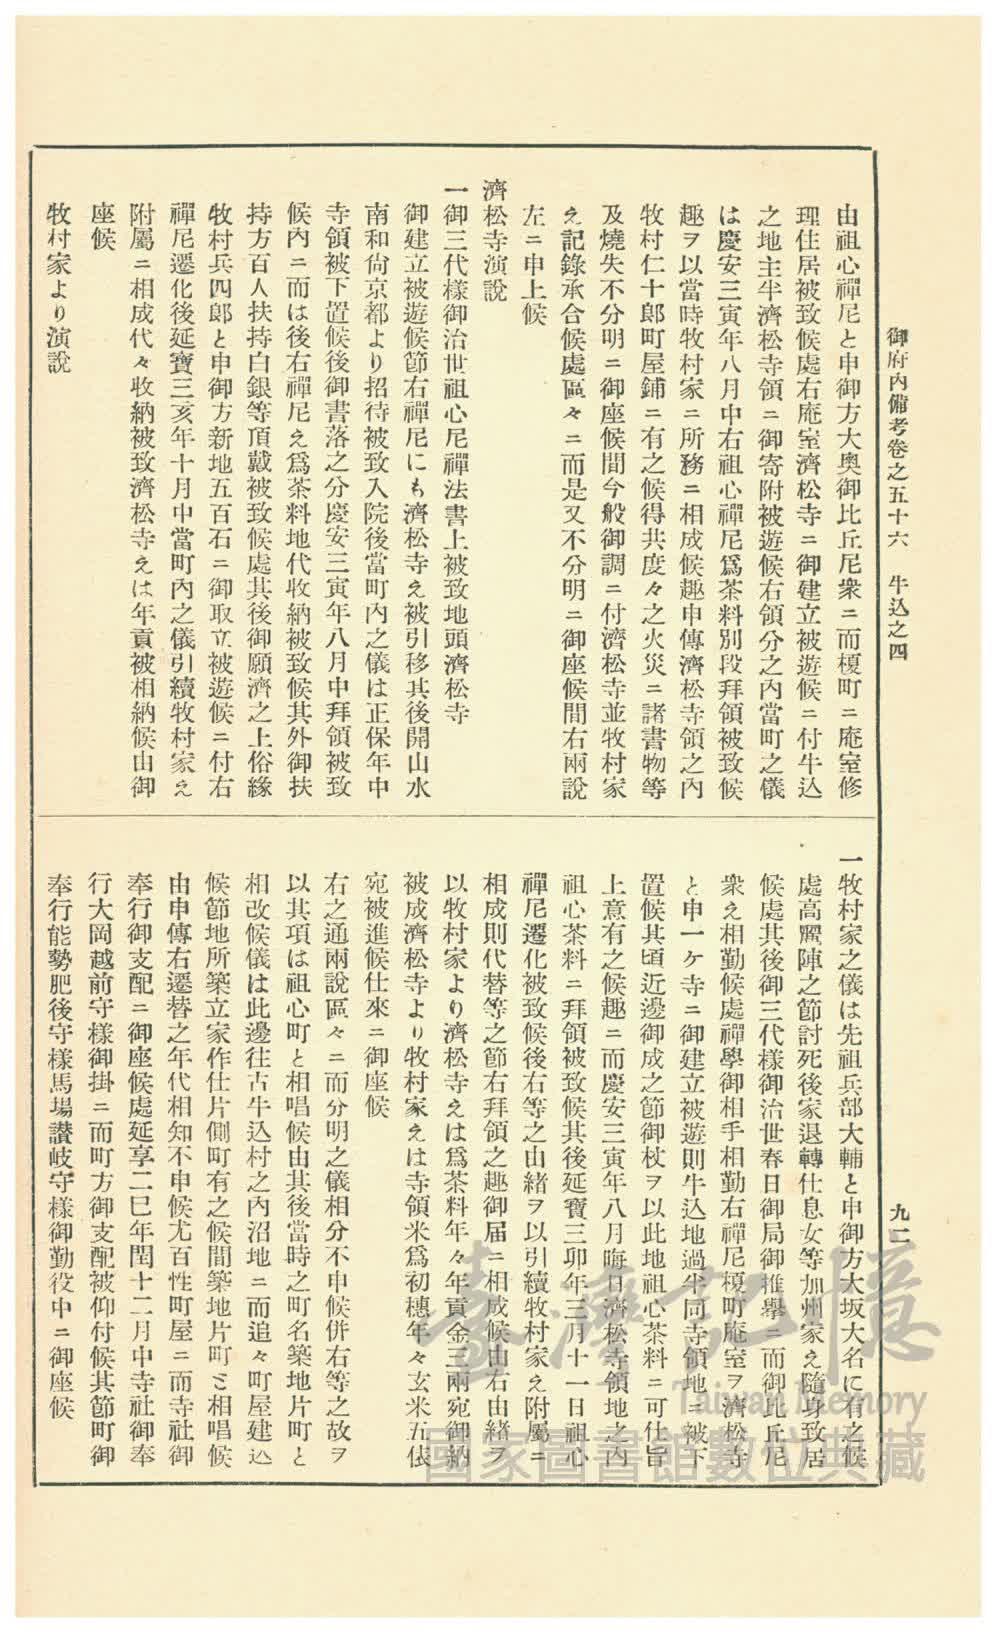 御府內備考卷之五十六　牛込之四
九二
由祖心禪尼と申御方大奥御比丘尼衆ニ而榎町ニ庵室修
理住居被致候處右庵室濟松寺ニ御建立被遊候ニ付牛込
之地主半濟松寺領ニ御寄附被遊候右領分之內當町之儀
は慶安三寅年八月中右祖心禪尼爲茶料別段拜領被致候
趣ヲ以當時牧村家ニ所務ニ相成候趣申傳濟松寺領之內
牧村仁十郎町屋鋪ニ有之候得共度々之火災ニ諸書物等
及燒失不分明ニ御座候間今般御調ニ付濟松寺並牧村家
え記錄承合候處區々ニ而是又不分明ニ御座候間右兩說
左ニ申上候
濟松寺演說
一御三代樣御治世祖心尼禪法書上被致地頭濟松寺
御建立被遊候節右禪尼にも濟松寺え被引移其後開山水
南和尙京都より招待被致入院後當町內之儀は正保年中
寺領被下置候後御書落之分慶安三寅年八月中拜領被致
候內ニ而は後右禪尼え爲茶料地代收納被致候其外御扶
持方百人扶持白銀等頂戴被致候處其後御願濟之上俗緣
牧村兵四郎と申御方新地五百石ニ御取立被遊候ニ付右
禪尼遷化後延寶三亥年十月中當町內之儀引續牧村家え
附屬ニ相成代々收納被致濟松寺えは年貢被相納候由御
座候
牧村家より演說
一牧村家之儀は先祖兵部大輔と申御方大坂大名に有之候
處高麗陣之節討死後家退轉仕息女等加州家え隨身致居
候處其後御三代樣御治世春日御局御推擧ニ而御比丘尼
衆え相勤候處禪學御相手相勤右禪尼榎町庵室ヲ濟松寺
と申一ケ寺ニ御建立被遊則牛込地過半同寺領地ニ被下
置候其頃近邊御成之節御杖ヲ以此地祖心茶料ニ可仕旨
上意有之候趣ニ而慶安三寅年八月晦日濟松寺領地之內
祖心茶料ニ拜領被致候其後延寶三卯年三月十一日祖心
禪尼遷化被致候後右等之由緖ヲ以引續牧村家え附屬ニ
相成則代替等之節右拜領之趣御届ニ相成候由右由緖ヲ
以牧村家より濟松寺えは爲茶料年々年貢金三兩宛御納
被成濟松寺より牧村家えは寺領米爲初穗年々玄米五俵
宛被進候仕來ニ御座候
右之通兩說區々ニ而分明之儀相分不申候併右等之故ヲ
以其項は祖心町と相唱候由其後當時之町名築地片町と
相改候儀は此邊往古牛込村之內沼地ニ而追々町屋建込
候節地所築立家作仕片側町有之候間築地片町と相唱候
由申傳右遷替之年代相知不申候尤百性町屋ニ而寺社御
奉行御支配ニ御座候處延享二巳年閏十二月中寺社御奉
行大岡越前守樣御掛ニ而町方御支配被仰付候其節町御
奉行能勢肥後守樣馬場讃岐守樣御勤役中ニ御座候
臺灣記憶
Taiwan Memory
國家圖書館數位典藏